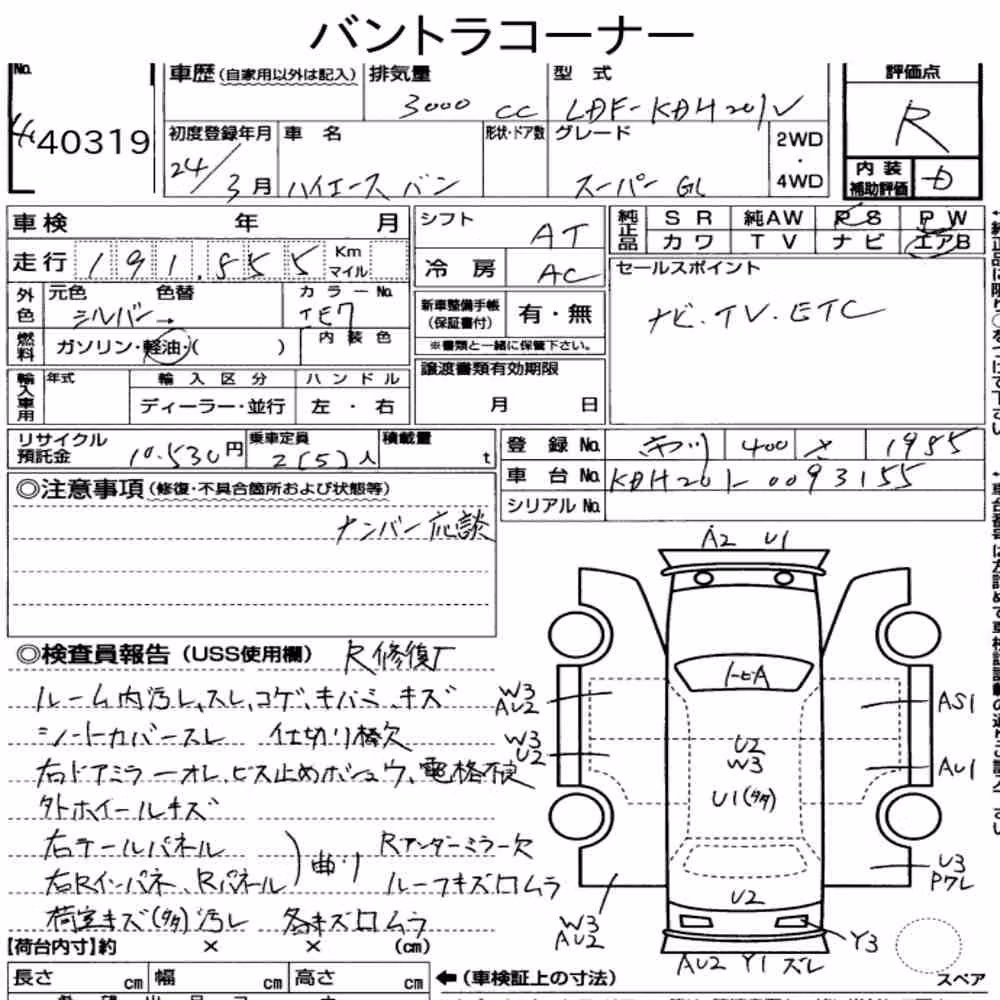 バントラコーナー
No. 40319
車歴(自家用以外は記入)
排気量 3000 cc
型式 LDF-KDH201V
評価点 R
初度登録年月 24/3月
車名 ハイエース バン
形状・ドア数
グレード スーパー GL
2WD・4WD
内装補助評価 D
車検 年 月
走行 191,855 Km マイル
シフト AT
冷房 AC
純正品 SR 純AW PS PW
カワ TV ナビ エアB
セールスポイント
ナビ.TV.ETC
外色 元色 シルバー→ 色替
カラーNo. 1E7
新車整備手帳(保証書付) 有・無
※書類と一緒に保管下さい。
燃料 ガソリン・軽油・( ) 内装色
譲渡書類有効期限
月 日
輸入車用 年式 輸入区分 ハンドル
ディーラー・並行 左・右
リサイクル預託金 10,530円
乗車定員 2(5)人
積載量 t
登録No. 400 さ 1985
車台No. KDH201-0093155
シリアルNo.
◎注意事項(修復・不具合箇所および状態等)
ナンバー応談
◎検査員報告(USS使用欄) R修復
ルーム内汚レ、スレ、コゲ、キバミ、キズ
シートカバースレ 仕切り棒欠
右ドアミラーオレ、ビス止めホシュウ、電格不良
外ホイールキズ
右テールパネル
右Rインパネ、Rパネル
曲り
Rアンダーミラー欠
ルーフキズロムラ
荷室キズ(多々)汚レ 各キズロムラ
A2 U1
トビA
W3 AU2
W3 U2
U2 W3
U1(多々)
AS1
AU1
U3
W3 AU2
U2
Y3
AU2 Y1 ズレ
スペア
【荷台内寸】約 × × (cm)
長さ cm 幅 cm 高さ cm
←(車検証上の寸法)